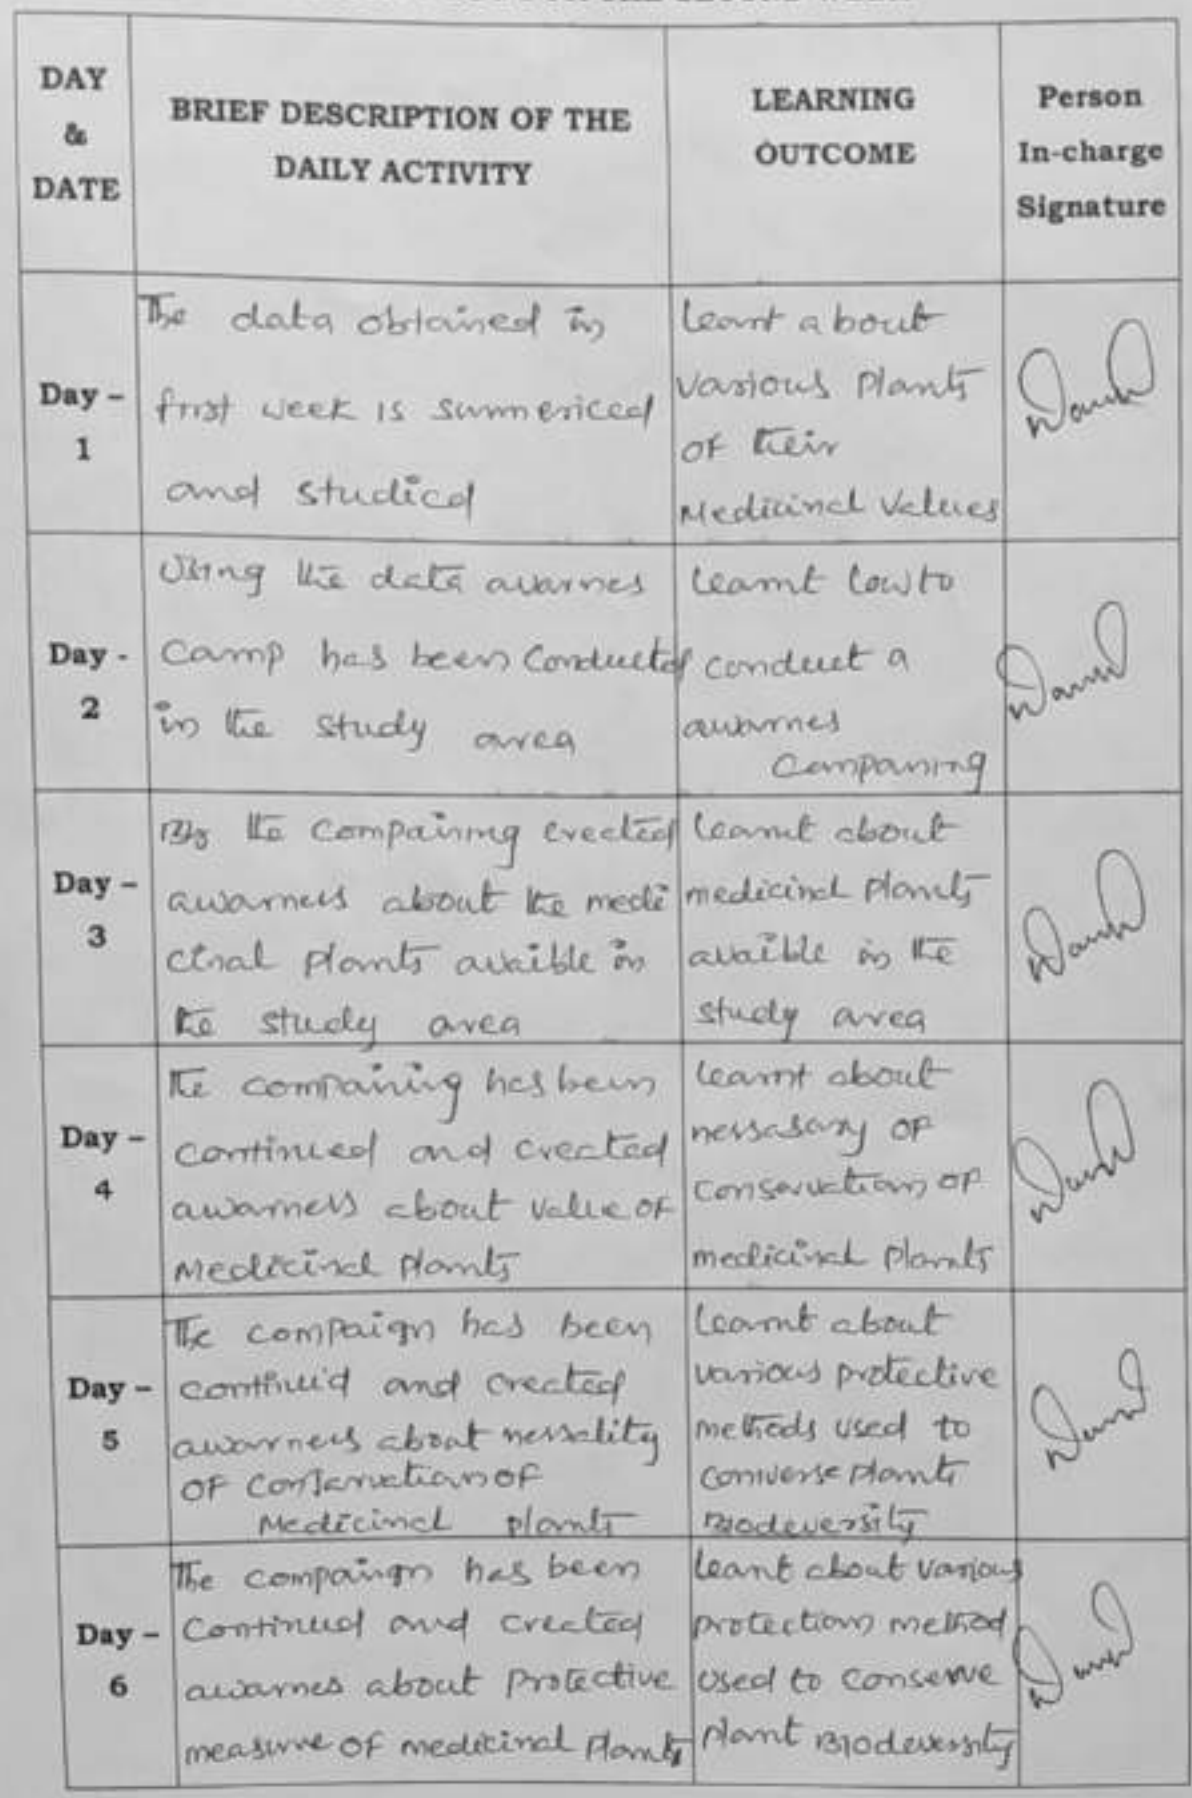 DAY
&
DATE
BRIEF DESCRIPTION OF THE
DAILY ACTIVITY
LEARNING
OUTCOME
Person
In-charge
Signature
Day –
1
The data obtained in
frist week is summericed
and studied
learnt about
various plants
of their
Medicinal values
Day -
2
Using the data awarnes
Camp has been conducted
in the study area
learnt how to
conduct a
awarnes
Companing
Day –
3
By the compaining created
awarness about the medi
cinal plants avaible in
the study area
learnt about
medicinal plants
avaible in the
study area
Day –
4
The compaining has been
continued and created
awarness about value of
Medicinal plants
learnt about
nessasary of
conservation of
medicinal plants
Day –
5
The compaign has been
continu'd and created
awarness about nessality
of conservation of
Medicinal plants
learnt about
various protective
methods used to
converse plants
Biodeversity
Day –
6
The compaign has been
continued and created
awarnes about protective
measure of medicinal plants
leant about various
protection method
used to conserve
plant Biodeversity